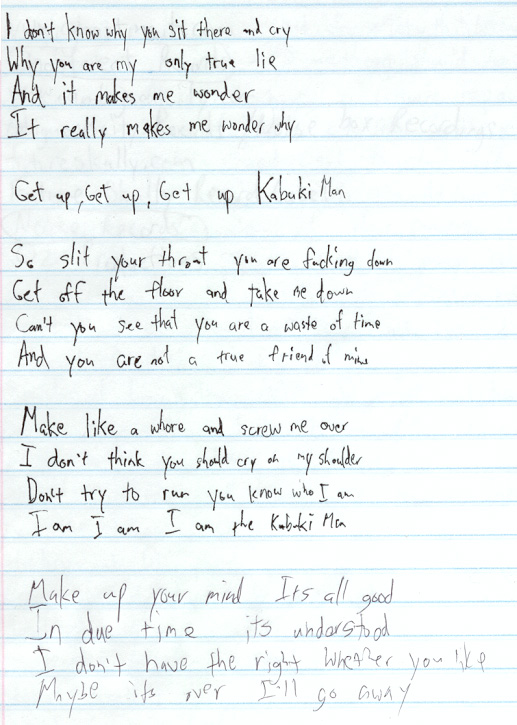 I don't know why you sit there and cry
Why you are my only true lie
And it makes me wonder
It really makes me wonder why
Get up, Get up, Get up Kabuki Man
So slit your throat you are fucking down
Get off the floor and take me down
Can't you see that you are a waste of time
And you are not a true friend of mine
Make like a whore and screw me over
I don't think you should cry on my shoulder
Don't try to run you know who I am
I am I am I am the Kabuki Man
Make up your mind Its all good
In due time its understood
I don't have the right whether you like
Maybe its over I'll go away